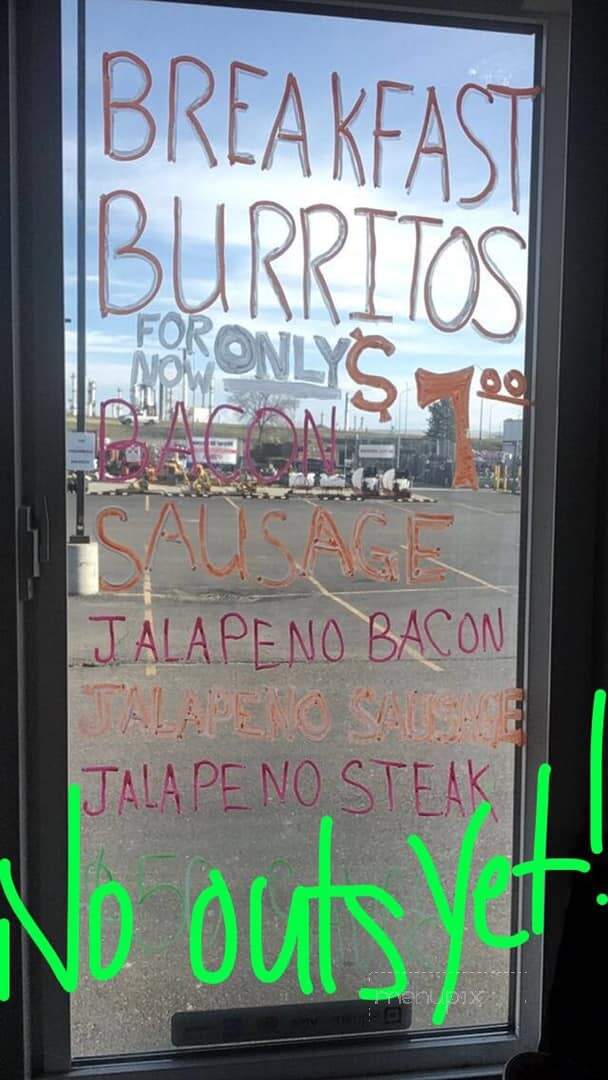 BREAKFAST
BURRITOS
FOR NOW ONLY $7.00
BACON
SAUSAGE
JALAPENO BACON
JALAPENO SAUSAGE
JALAPENO STEAK
No outs yet!
menupix